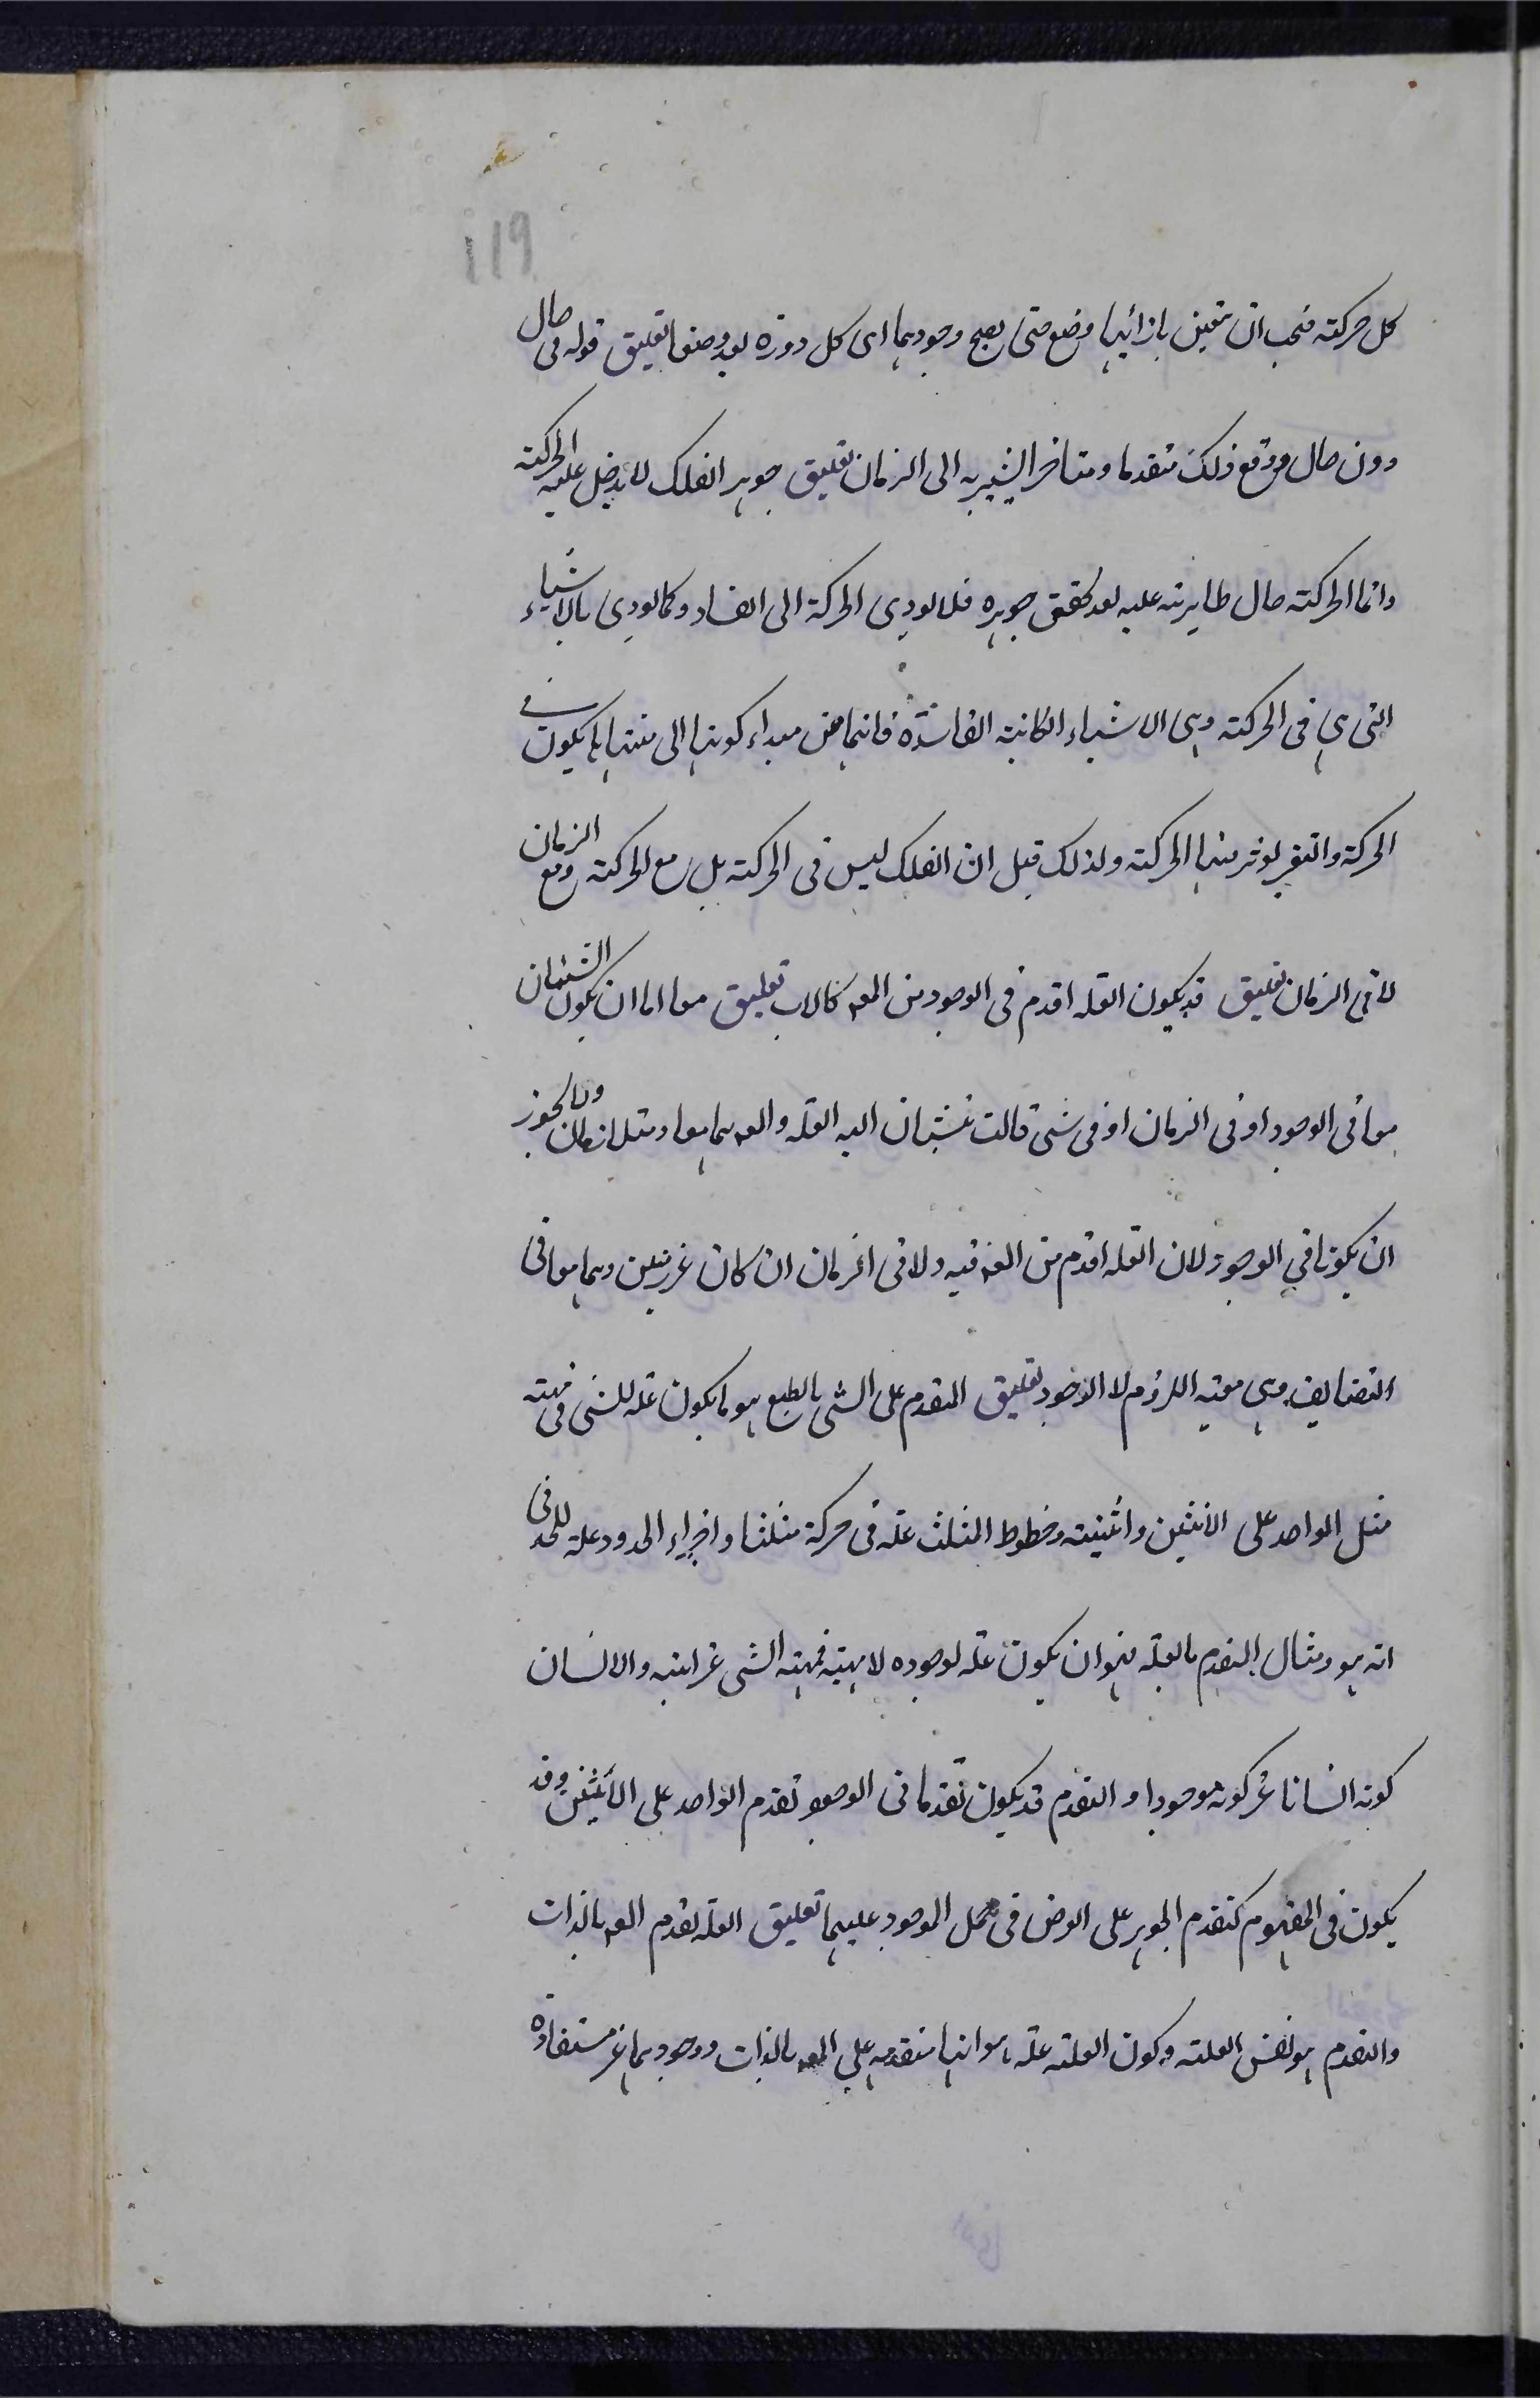 119
كل حركته فيجب ان يتعين بازائها وضع حتى يصح وجودهما اى كل دورة بعد وضعها تعليق قوله فى حال
دون حال ووقع ذلك متقدما ومتاخرا يشير به الى الزمان تعليق جوهر الفلك لا يدخل عليه الحركته
وانما الحركته حال طاريته عليه بعد تحقق جوهره فلا يودى الحركة الى الفساد وكما يودى بالاشياء
التى هى فى الحركته وهى الاشياء الكائنة الفاسدة فانها من مبداء كونها الى منتهاها يكون فى
الحركة والتغير يوثر فيها الحركته ولذلك قيل ان الفلك ليس فى الحركته بل مع الحركته ومع الزمان
لا فى الزمان تعليق قد يكون العلة اقدم فى الوجود من المعـ كالاب تعليق معا اما ان يكون الشيئان
معا فى الوجود او فى الزمان او فى شى ثالث ينسبان اليه العلة والمعـ هما معا ولا يجوز
ان يكونا فى الوجود لان العلة اقدم من المعـ فيه ولا فى الزمان ان كان غير زمنيين وهما معا فى
التضايف وهى معية اللزوم لا الوجود تعليق المتقدم على الشى بالطبع هو ما يكون علة للشى فى مهيته
مثل الواحد على الاثنين واثنينيته وخطوط المثلث علة فى حركة مثلثا واجزاء الحدود علة للحد فى
انه هو ومثال المتقدم بالعلة فهو ان يكون علة لوجوده لا مهيته فمهية الشى غير انيته والانسان
كونه انسانا غير كونه موجودا والتقدم قد يكون تقدما فى الوجود تقدم الواحد على الاثنين وقد
يكون فى المفهوم كتقدم الجوهر على العرض فى حمل الموجود عليهما تعليق العلة تقدم المعـ بالذات
والتقدم هو نفس العلته وكون العلته علة هو انها متقدمه على المعـ بالذات ووجودهما غير مستفادة